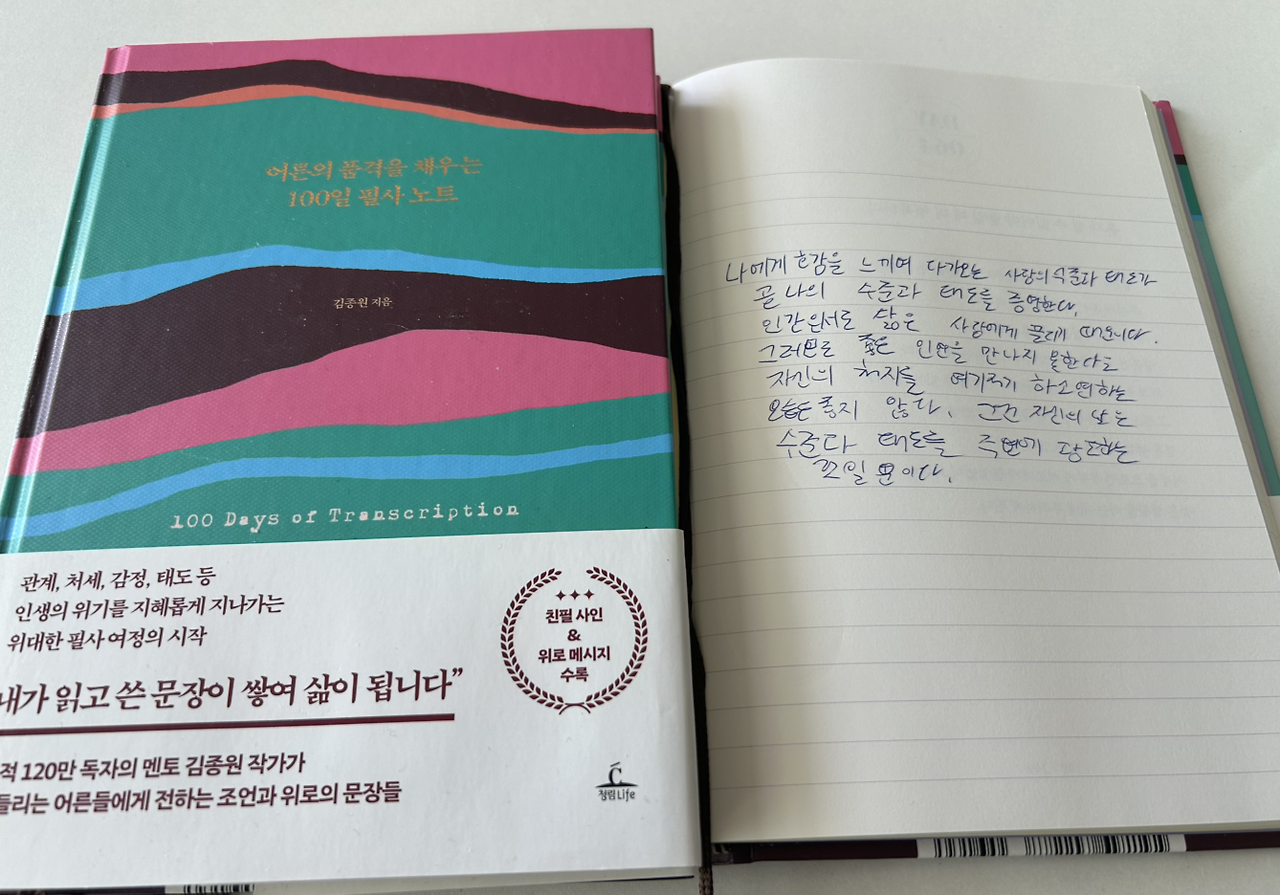 어른의 품격을 채우는
100일 필사 노트
김종원 지음
100 Days of Transcription
관계, 처세, 감정, 태도 등
인생의 위기를 지혜롭게 지나가는
위대한 필사 여정의 시작
내가 읽고 쓴 문장이 쌓여 삶이 됩니다”
적 120만 독자의 멘토 김종원 작가가
들리는 어른들에게 전하는 조언과 위로의 문장들
친필 사인
&
위로 메시지
수록
청림Life
나에게 호감을 느끼며 다가오는 사람의 수준과 태도가
곧 나의 수준과 태도를 증명한다.
인간은 서로 닮은 사람에게 끌리게 때문이다.
그러므로 좋은 인연을 만나지 못한다고
자신의 처지를 여기저기 하소연하는
좋지 않다. 그건 자신의 낮은
수준과 태도를 주변에 광고하는
꼴일 뿐이다.